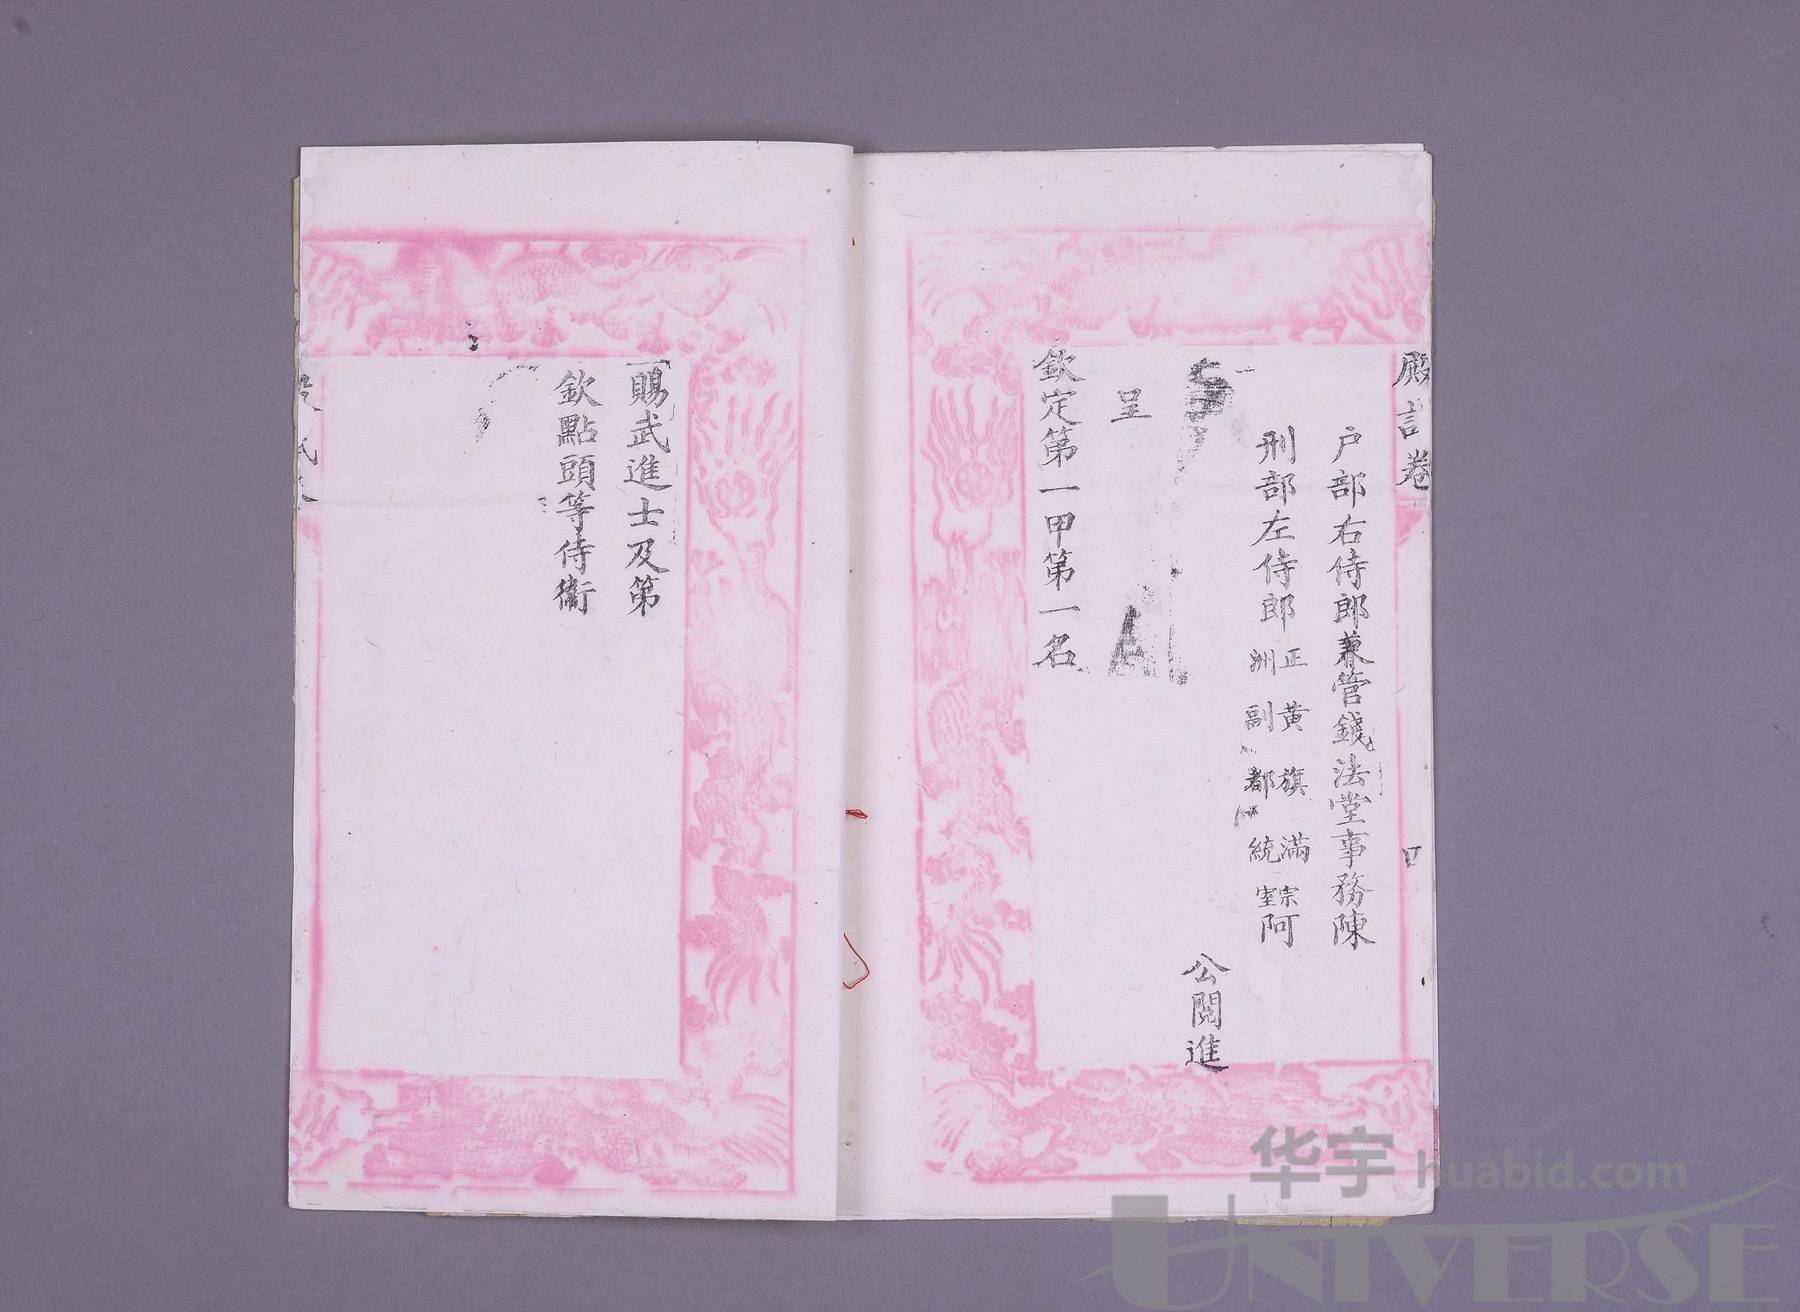 殿試卷
户部右侍郎兼管錢法堂事務陳
刑部左侍郎正黃旗滿洲副都統宗室阿
公閱進
呈
欽定第一甲第一名
賜武進士及第
欽點頭等侍衛
华宇 huabid.com
UNIVERSE